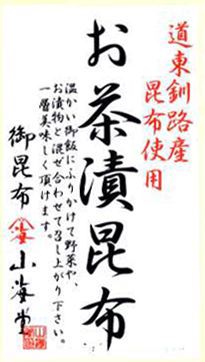 道東釧路産
昆布使用
お茶漬昆布
温かい御飯にふりかけて野菜や、
お漬物と混ぜ合わせて召し上がり下さい。
一層美味しく頂けます。
御昆布
小海堂